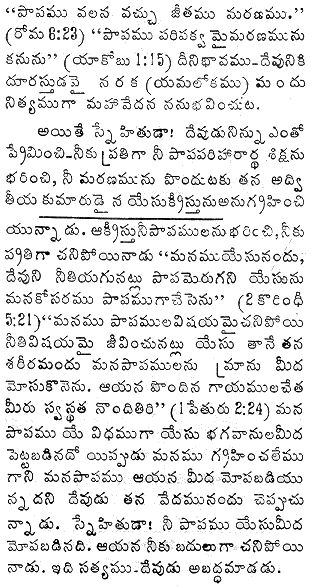 “పాపము వలన వచ్చు జీతము మరణము.”
(రోమ 6:23) “పాపము పరిపక్వమైమరణమును
కనును” (యాకోబు 1:15) దినిభావము-దేవునికి
దూరస్తుడవై నరక (యమలోకము) మందు
నిత్యముగా మహావేదన ననుభవించుట.
అయితే స్నేహితుడా! దేవుడునిన్ను ఎంతో
ప్రేమించి-నీకు ప్రతిగా నీ పాపపరిహారార్థ శిక్షను
భరించి, నీ మరణమును పొందుటకు తన అద్వి
తీయ కుమారుడైన యేసుక్రీస్తును అనుగ్రహించి
యున్నాడు. ఆక్రీస్తు నీపాపములను భరించి, నీకు
ప్రతిగా చనిపోయినాడు “మనముయేసునందు,
దేవుని నీతియగునట్లు పాపమెరుగని యేసును
మనకోసరము పాపముగాచేసెను” (2 కొరింధీ
5:21) “మనము పాపములవిషయమైచనిపోయి
నీతివిషయమై జీవించునట్లు యేసు తానే తన
శరీరమందు మనపాపములను మ్రాను మీద
మోసుకొనెను. ఆయన పొందిన గాయములచేత
మీరు స్వస్థత నొందితిరి” (1 పేతురు 2:24) మన
పాపము యే విధముగా యేసు భగవానులమీద
పెట్టబడినదో యిప్పుడు మనము గ్రహించలేము
గాని మనపాపము ఆయన మీద మోపబడియు
న్నదని దేవుడు తన వేదమునందు చెప్పుచు
న్నాడు. స్నేహితుడా! నీ పాపము యేసుమీద
మోపబడినది. ఆయన నీకు బదులుగా చనిపోయి
నాడు. ఇది సత్యము-దేవుడు అబద్ధమాడడు.